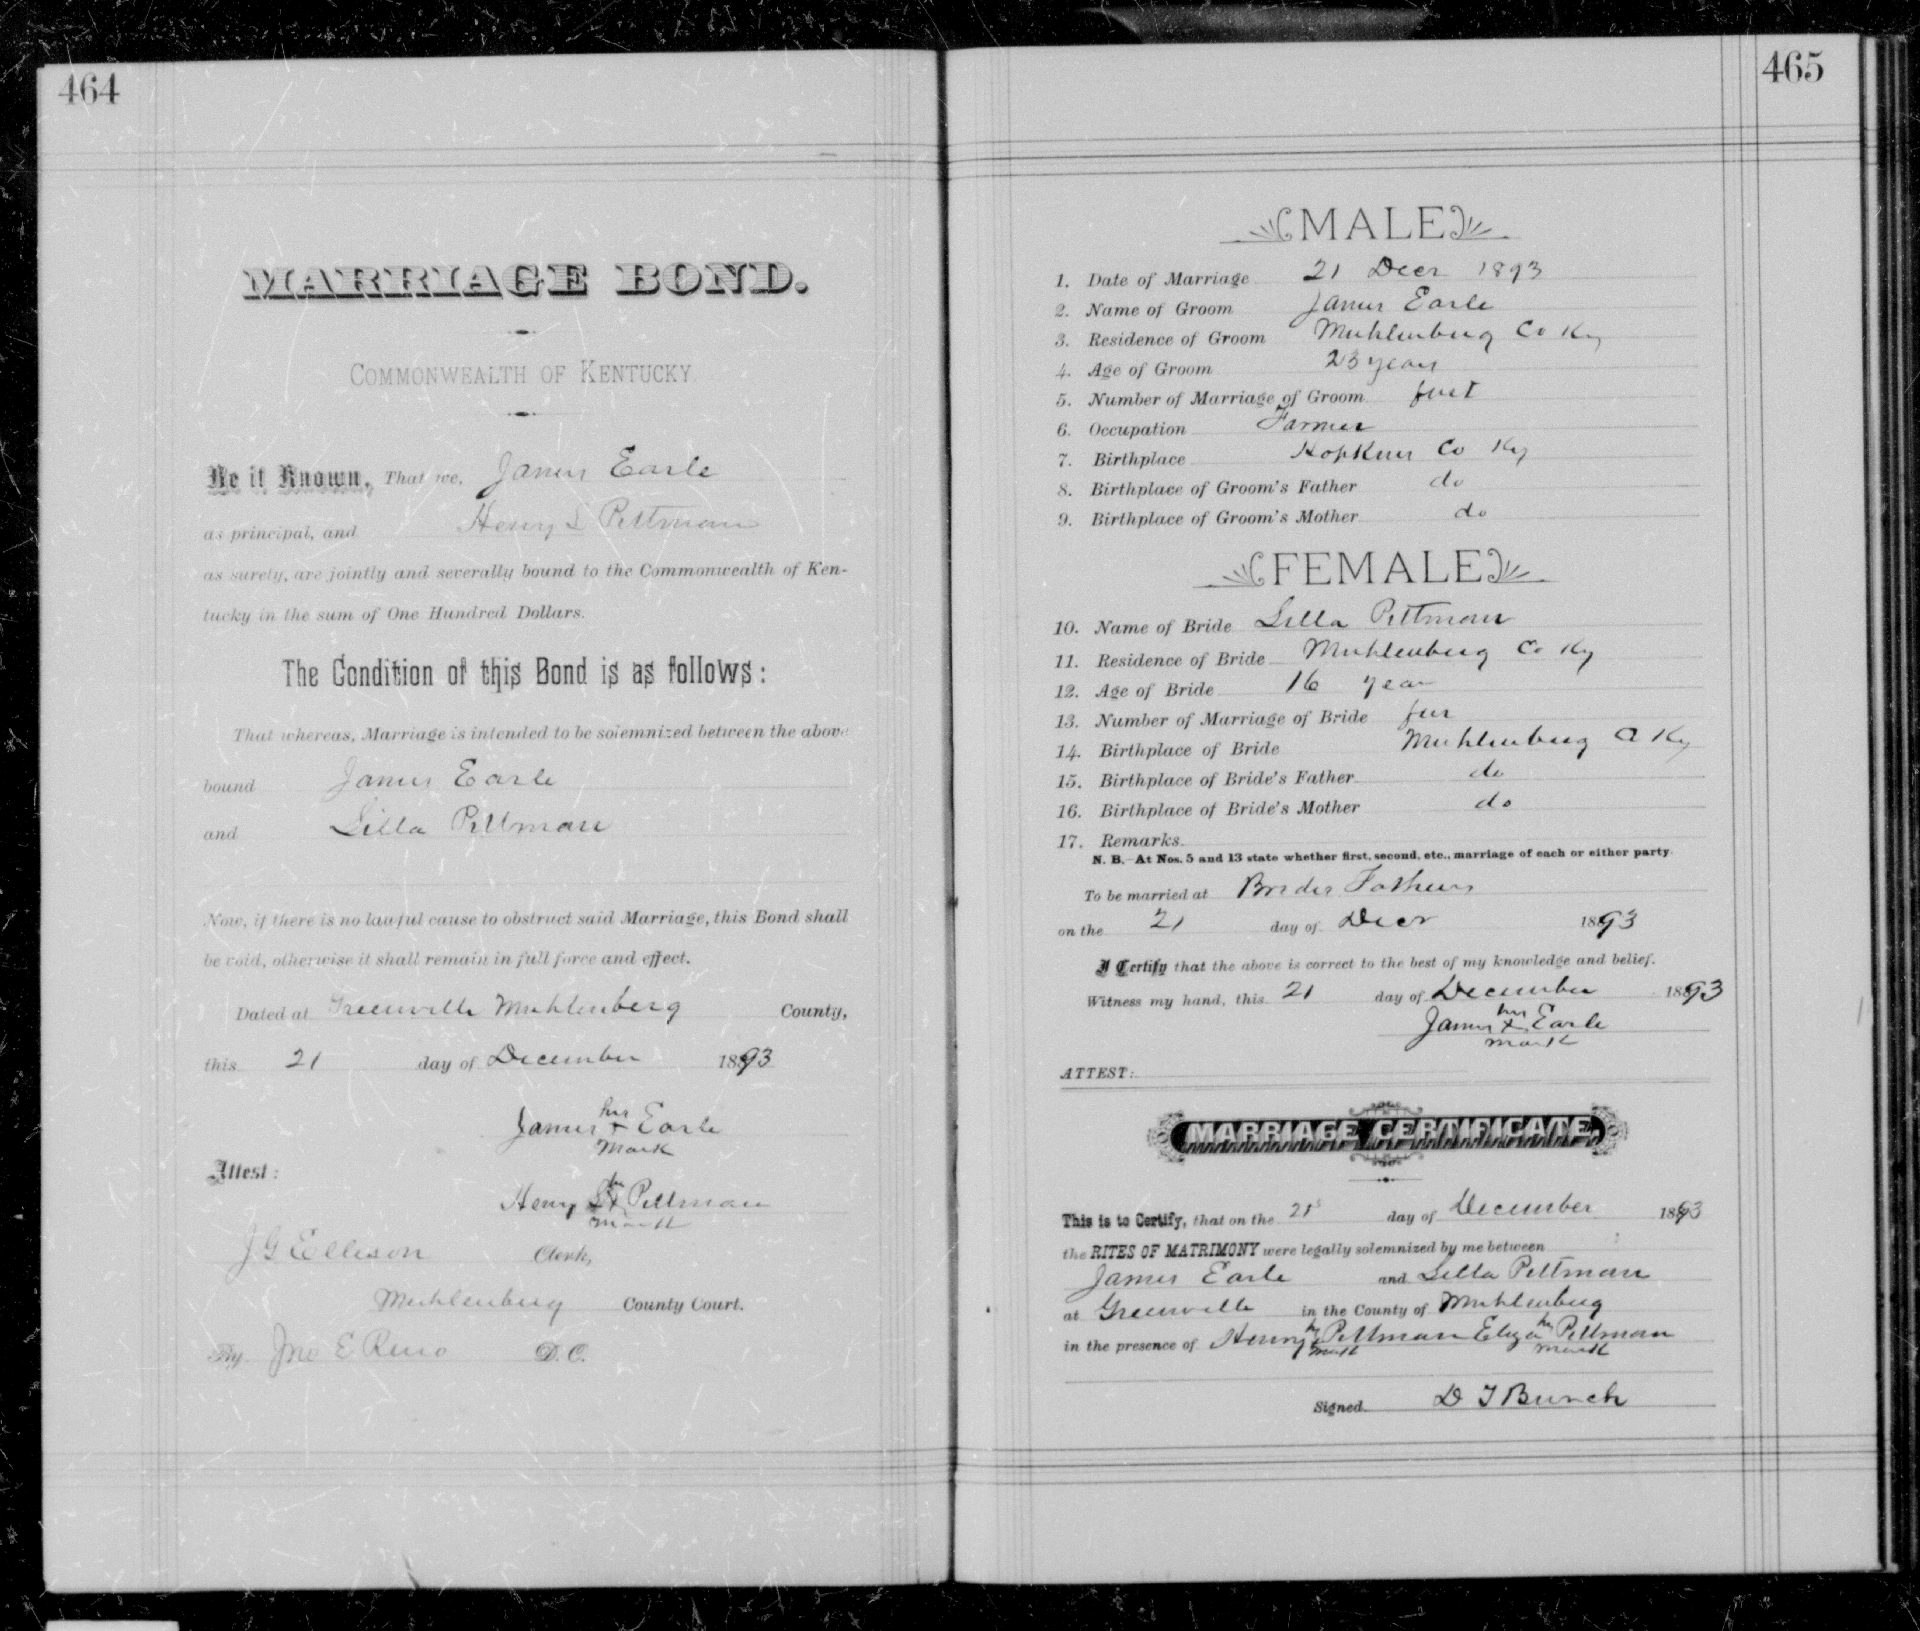 464
MARRIAGE BOND.
COMMONWEALTH OF KENTUCKY.
Be it Known, That we, James Earle
as principal, and Henry S Pittman
as surety, are jointly and severally bound to the Commonwealth of Ken-
tucky in the sum of One Hundred Dollars.
The Condition of this Bond is as follows:
That whereas, Marriage is intended to be solemnized between the above
bound James Earle
and Lilla Pittman
Now, if there is no lawful cause to obstruct said Marriage, this Bond shall
be void, otherwise it shall remain in full force and effect.
Dated at Greenville Muhlenberg County,
this 21 day of December 1893
his
James + Earle
mark
Attest:
his
Henry S + Pittman
mark
J G Ellison Clerk,
Muhlenberg County Court.
By Jno E Reno D. C.
465
MALE
1. Date of Marriage 21 Decr 1893
2. Name of Groom James Earle
3. Residence of Groom Muhlenberg Co Ky
4. Age of Groom 23 years
5. Number of Marriage of Groom first
6. Occupation Farmer
7. Birthplace Hopkins Co Ky
8. Birthplace of Groom's Father do
9. Birthplace of Groom's Mother do
FEMALE
10. Name of Bride Lilla Pittman
11. Residence of Bride Muhlenberg Co Ky
12. Age of Bride 16 year
13. Number of Marriage of Bride firs
14. Birthplace of Bride Muhlenberg Co Ky
15. Birthplace of Bride's Father do
16. Birthplace of Bride's Mother do
17. Remarks
N. B.-At Nos. 5 and 13 state whether first, second, etc., marriage of each or either party.
To be married at Brides Fathers
on the 21 day of Decr 1893
I Certify that the above is correct to the best of my knowledge and belief.
Witness my hand, this 21 day of December 1893
his
James x Earle
mark
ATTEST:
MARRIAGE CERTIFICATE
This is to Certify, that on the 21s day of December 1893
the RITES OF MATRIMONY were legally solemnized by me between
James Earle and Lilla Pittman
at Greenville in the County of Muhlenberg
his her
in the presence of Henry Pittman Eliza Pittman
mark mark
Signed D T Bunch